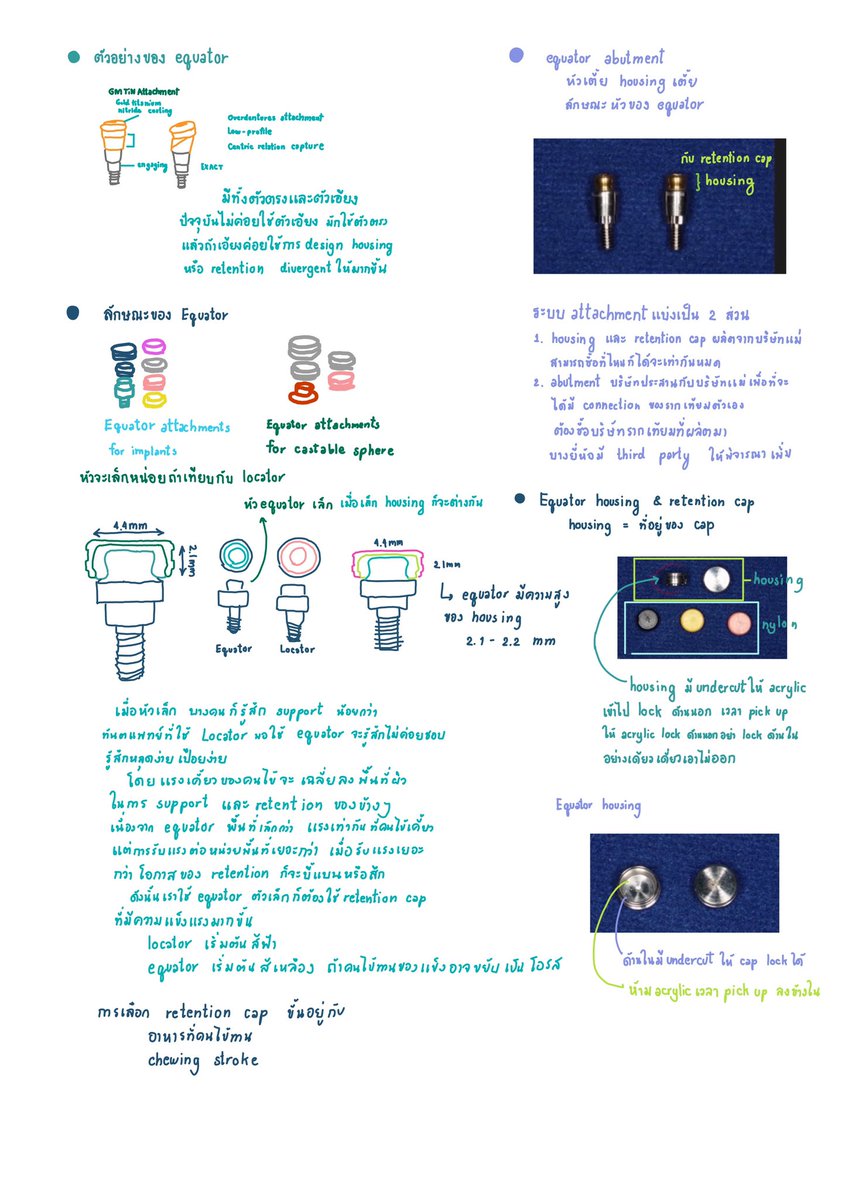 ตัวอย่างของ equator
GM TiN Attachment
Gold titanium
nitride coating
Overdentures attachment
Low-profile
Centric relation capture
engaging
EXACT
มีทั้งตัวตรงและตัวเอียง
ปัจจุบันไม่ค่อยใช้ตัวเอียง มักใช้ตัวตรง
แล้วถ้าเอียงค่อยใช้การ design housing
หรือ retention divergent ให้มากขึ้น
ลักษณะของ Equator
Equator attachments
for implants
Equator attachments
for castable sphere
หัวจะเล็กหน่อยถ้าเทียบกับ locator
หัว equator เล็ก เมื่อเล็ก housing ก็จะต่างกัน
4.4mm
2.1mm
Equator
Locator
4.4mm
2.1mm
equator มีความสูง
ของ housing
2.1 - 2.2 mm
เมื่อหัวเล็ก บางคนก็รู้สึก support น้อยกว่า
ทันตแพทย์ที่ใช้ Locator พอใช้ equator จะรู้สึกไม่ค่อยชอบ
รู้สึกหลุดง่าย เปื่อยง่าย
โดยแรงเคี้ยวของคนไข้จะ เฉลี่ยลงพื้นที่ผิว
ในการ support และ retention ของข้างๆ
เนื่องจาก equator พื้นที่เล็กกว่า แรงเท่ากันที่คนไข้เคี้ยว
แต่การรับแรงต่อหน่วยพื้นที่เยอะกว่า เมื่อรับแรงเยอะ
กว่า โอกาสของ retention ก็จะบี้แบนหรือสึก
ดังนั้นเราใช้ equator ตัวเล็กก็ต้องใช้ retention cap
ที่มีความแข็งแรงมากขึ้น
locator เริ่มต้นสีฟ้า
equator เริ่มต้นสีเหลือง ถ้าคนไข้ทานของแข็งอาจขยับเป็นโอรส
การเลือก retention cap ขึ้นอยู่กับ
อาหารที่คนไข้ทาน
chewing stroke
equator abutment
หัวเตี้ย housing เตี้ย
ลักษณะหัวของ equator
กับ retention cap
housing
ระบบ attachment แบ่งเป็น 2 ส่วน
1. housing และ retention cap ผลิตจากบริษัทแม่
สามารถซื้อที่ไหนก็ได้จะเท่ากันหมด
2. abutment บริษัทประสานกับบริษัทแม่เพื่อที่จะ
ได้มี connection ของรากเทียมตัวเอง
ต้องซื้อบริษัทรากเทียมที่ผลิตมา
บางยี่ห้อมี third party ให้พิจารณาเพิ่ม
Equator housing & retention cap
housing = ที่อยู่ของ cap
housing
nylon
housing มี undercut ให้ acrylic
เข้าไป lock ด้านนอก เวลา pick up
ให้ acrylic lock ด้านนอกอย่า lock ด้านใน
อย่างเดียวเดี๋ยวเอาไม่ออก
Equator housing
ด้านในมี undercut ให้ cap lock ได้
ห้าม acrylic เวลา pick up ลงข้างใน